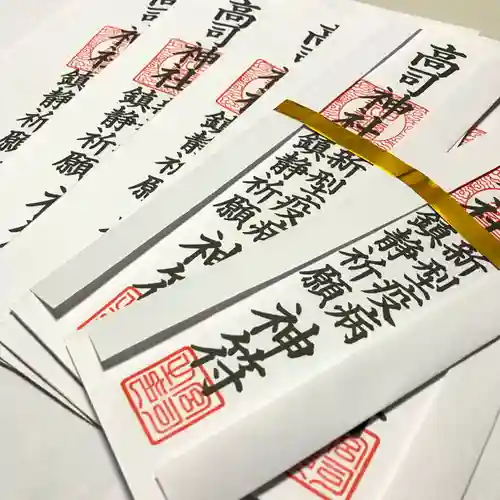 高司神社
新型疫病
鎮静祈願
神符
高司神社
新型疫病
鎮静祈願
神符
高司神社
鎮静祈願
神社
鎮静祈願
神社
鎮静祈願